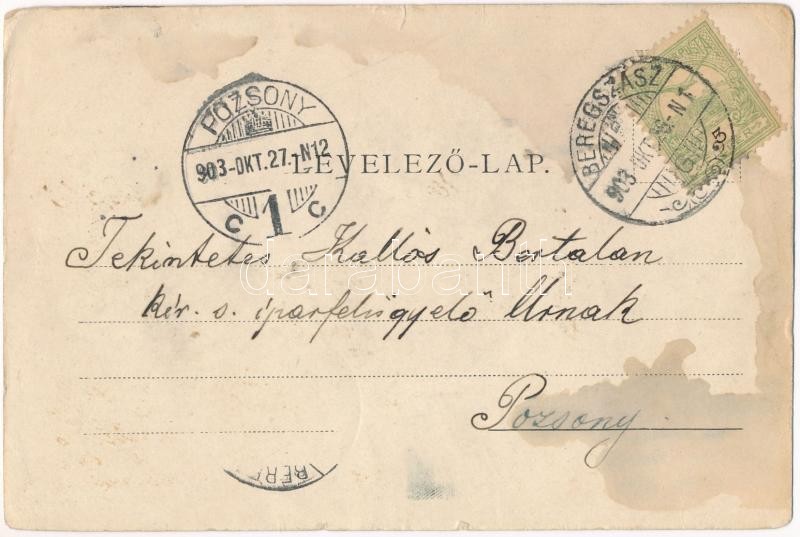 POZSONY
903-OKT.27.-N12
C 1 C
BEREGSZÁSZ
903 OKT.
LEVELEZŐ-LAP.
Tekintetes Kallós Bertalan
darabanth
kir. s. iparfelügyelő Urnak
Pozsony
BERE